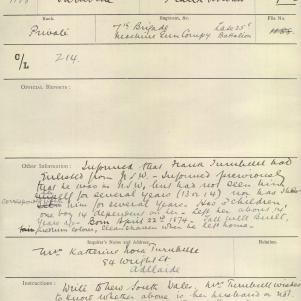 Rank.
Regiment, &c.
File No.
Private
7th Brigade Late 25th
Machine Gun Compy Battalion
214.
OFFICIAL REPORTS:
Other Information: Informed that Frank Turnbull had
enlisted from N.S.W. - Informed previously
that he was in N.S.W, but had not seen him
for several years (13 or 14) nor has she
him for several years. Has 3 children,
one boy 14 dependent on her. Left her about 15
years ago. Born April 22nd 1874. Tall well built,
medium colour, cleanshaven when he left home.
Inquirer's Name and Address.
Relation.
Mrs Katherine Nora Turnbull
84 Wright St
Adelaide
Instructions: Write to New South Wales, Mrs Turnbull wishes
to know whether above is her husband or not.